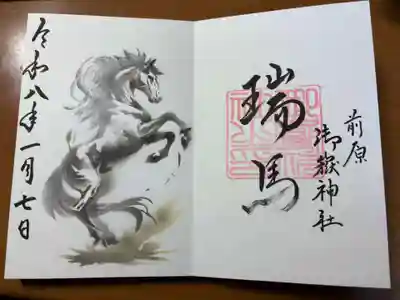 前原
御嶽神社
瑞馬
令和八年一月七日